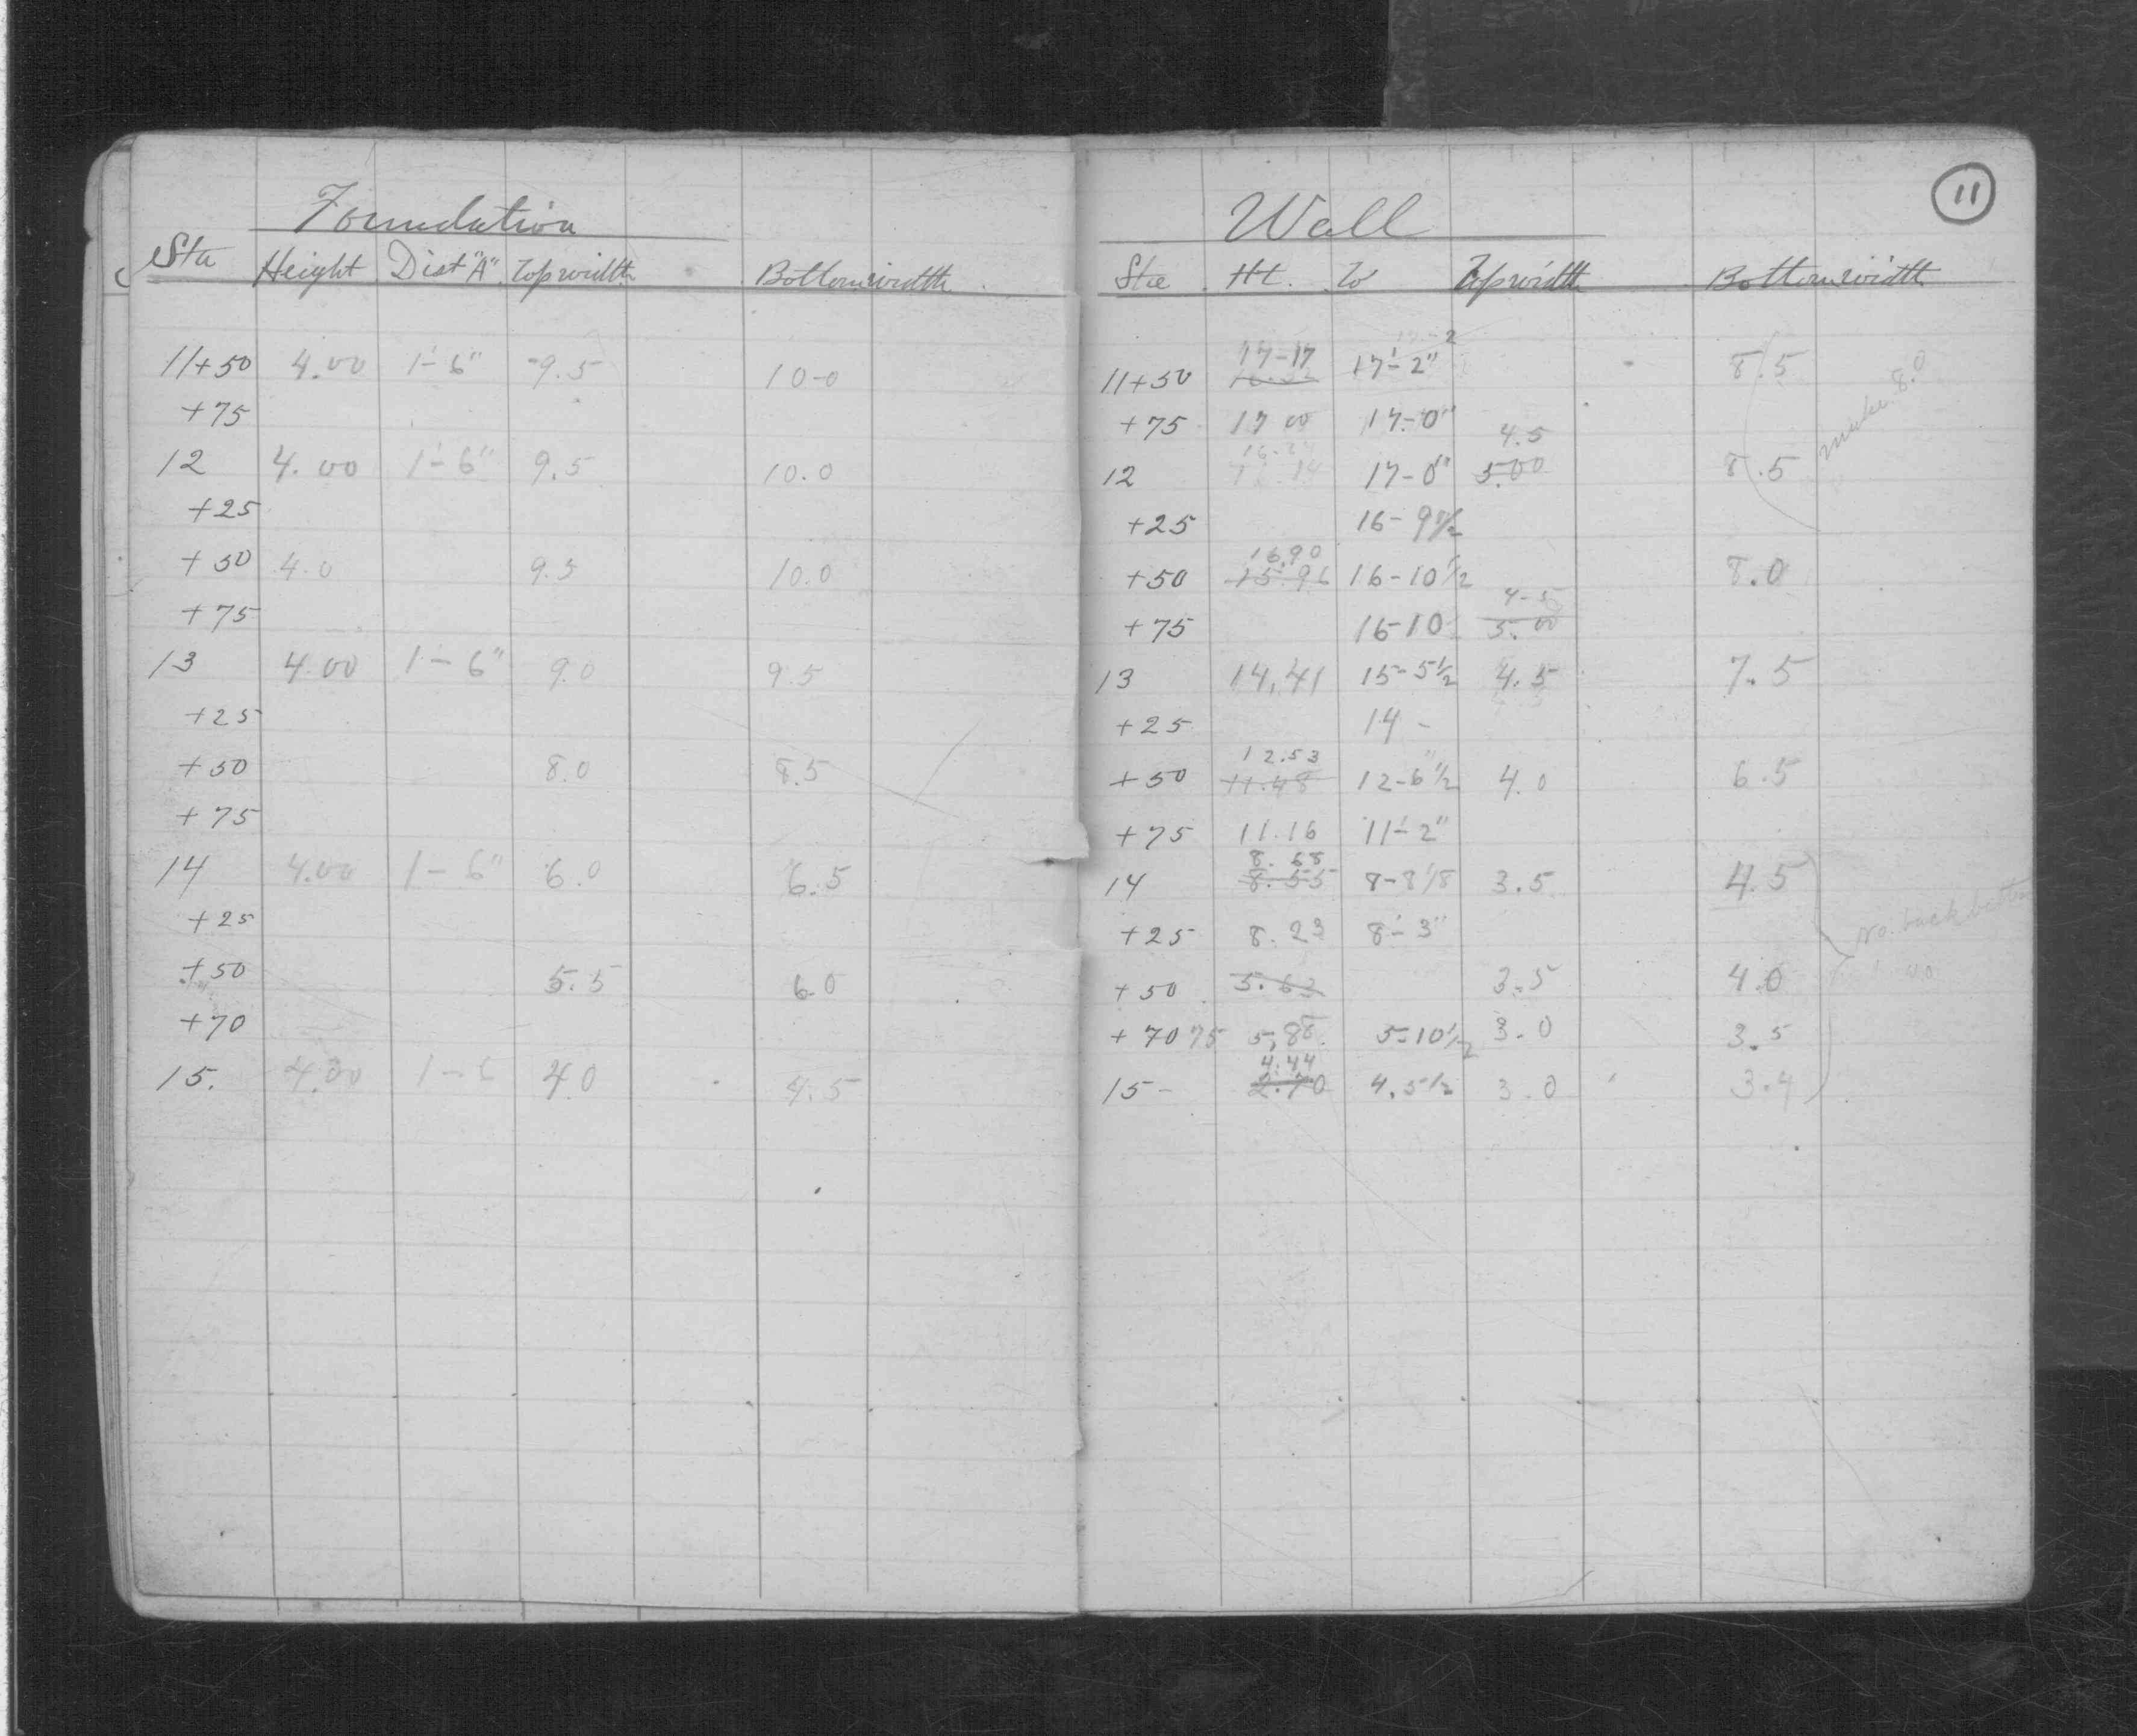 Foundation
Sta Height Dist "A" Top width Bottom width
11+50 4.00 1'-6" 9.5 10-0
+75
12 4.00 1'-6" 9.5 10.0
+25
+50 4.0 9.5 10.0
+75
13 4.00 1-6" 9.0 9.5
+25
+50 8.0 8.5
+75
14 4.00 1-6" 6.0 6.5
+25
+50 5.5 6.0
+70
15. 4.00 1-6 4.0 4.5
11
Wall
Sta Ht. W Top width Bottom width
17-17
11+50 17'-2" 8.5
make 8.0
+75 17 00 17-0"
4.5
12 17-0" 5.00 8.5
+25 16-9 1/2
16.90
+50 15.96 16-10 1/2 8.0
4-5
+75 16-10 5.00
13 14.41 15-5 1/2 4.5 7.5
+25 14 -
12.53
+50 11.48 12-6 1/2 4.0 6.5
+75 11.16 11'-2"
8.68
14 8.55 8-8 1/8 3.5 4.5
+25 8.23 8'-3"
no back batter
+50 5.63 3.5 4.0
+70 75 5.88 5-10 1/2 3.0 3.5
4.44
15- 2.70 4.5 1/2 3.0 3.4